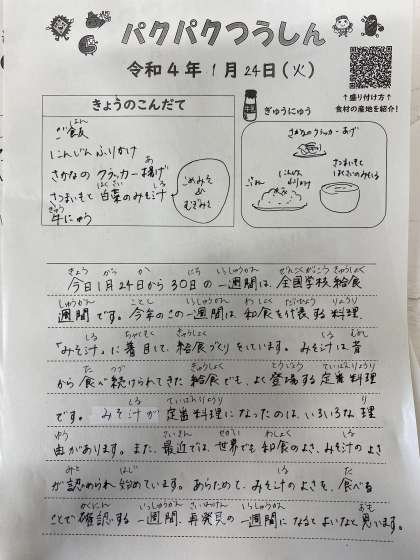 パクパクつうしん
令和4年1月24日(火)
↑盛り付け方↑
食材の産地を紹介!
きょうのこんだて
ご飯
にんじんふりかけ
さかなのクラッカー揚げ
さつまいもと白菜のみそ汁
牛にゅう
こめみそ
&
むぎみそ
ぎゅうにゅう
さかなのクラッカーあげ
ごはん
にんじん
ふりかけ
さつまいもと
はくさいのみそしる
今日1月24日から30日の一週間は、全国学校給食
週間です。今年のこの一週間は和食を代表する料理
「みそ汁」に着目して、給食づくりをしています。みそ汁は昔
から食べ続けられてきた給食でも、よく登場する定番料理
です。みそ汁が定番料理になったのは、いろいろな理
由があります。また、最近では、世界でも和食のよさ、みそ汁のよさ
が認められ始めています。あらためて、みそ汁のよさを、食べる
ことで確認する一週間、再発見の一週間になるとよいなと思います。